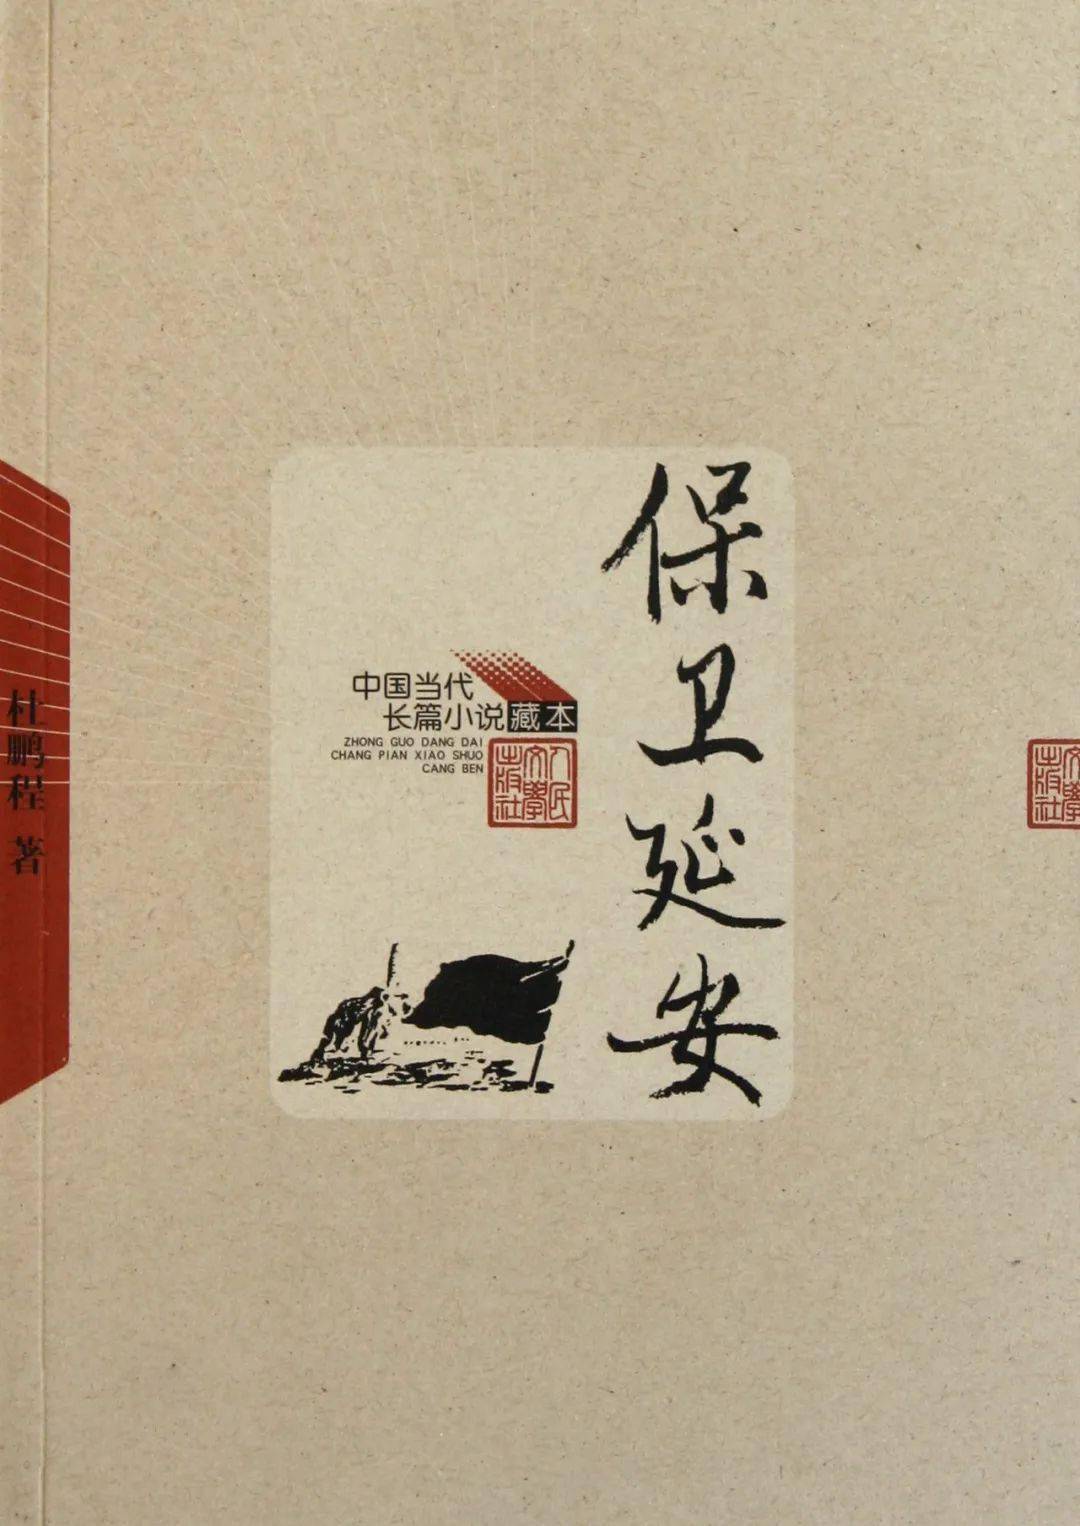 保卫延安
中国当代
长篇小说藏本
ZHONG GUO DANG DAI
CHANG PIAN XIAO SHUO
CANG BEN
人民
文學
出版社
杜鹏程 著
文學
出版社